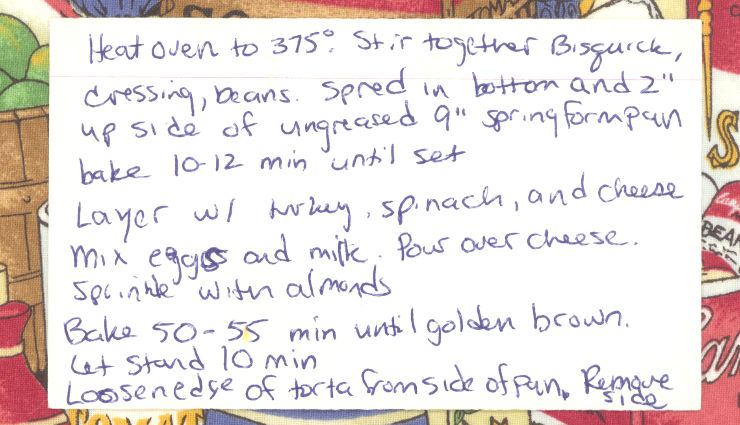 Heat oven to 375°. Stir together Bisquick,
dressing, beans. Spred in bottom and 2"
up side of ungreased 9" springformpan
bake 10-12 min until set
Layer w/ turkey, spinach, and cheese
Mix eggs and milk. Pour over cheese.
Sprinkle with almonds
Bake 50-55 min until golden brown.
Let stand 10 min
Loosen edge of torta from side of pan. Remove
side
BEA